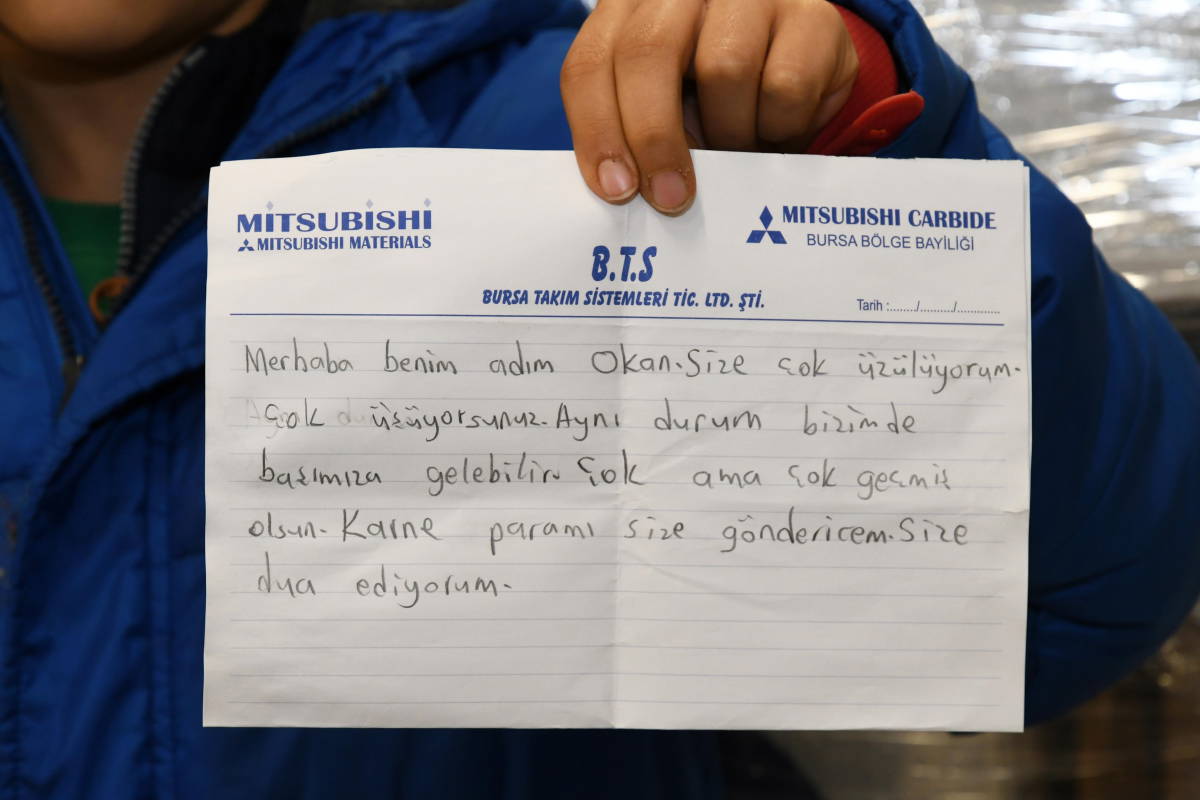 MİTSUBİSHİ
MITSUBISHI MATERIALS
MITSUBISHI CARBIDE
BURSA BÖLGE BAYİLİĞİ
B.T.S
BURSA TAKIM SİSTEMLERİ TİC. LTD. ŞTİ.
Tarih :......../........../.............
Merhaba benim adım Okan. Size çok üzülüyorum.
çok üşüyorsunuz. Aynı durum bizimde
başımıza gelebilir. Çok ama çok geçmiş
olsun. Karne paramı size göndericem. Size
dua ediyorum.